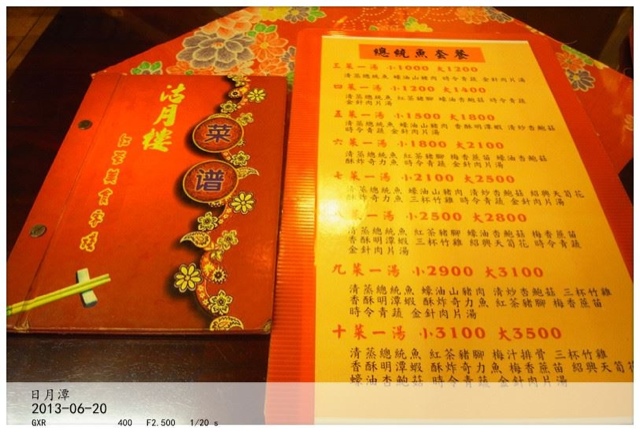 沽月樓
紅茶葉食客棧
菜
谱
總統魚套餐
三菜一湯 小1000 大1200
清蒸總統魚 蠔油山豬肉 時令青蔬 金針肉片湯
四菜一湯 小1200 大1400
清蒸總統魚 紅茶豬腳 蠔油杏鮑菇 時令青蔬
金針肉片湯
五菜一湯 小1500 大1800
清蒸總統魚 蠔油山豬肉 香酥明潭蝦 清炒杏鮑菇
時令青蔬 金針肉片湯
六菜一湯 小1800 大2100
清蒸總統魚 紅茶豬腳 梅香蒸苗 清炒杏鮑菇
酥炸奇力魚 時令青蔬 金針肉片湯
七菜一湯 小2100 大2500
清蒸總統魚 蠔油山豬肉 清炒杏鮑菇 紹興天荀花
酥炸奇力魚 三杯竹雞 時令青蔬 金針肉片湯
八菜一湯 小2500 大2800
清蒸總統魚 紅茶豬腳 蠔油杏鮑菇 梅香蒸苗
香酥明潭蝦 三杯竹雞 紹興天荀花 時令青蔬
金針肉片湯
九菜一湯 小2900 大3100
清蒸總統魚 蠔油山豬肉 清炒杏鮑菇 三杯竹雞
香酥明潭蝦 酥炸奇力魚 紅茶豬腳 梅香蒸苗
時令青蔬 金針肉片湯
十菜一湯 小3100 大3500
清蒸總統魚 紅茶豬腳 梅汁排骨 三杯竹雞
香酥明潭蝦 酥炸奇力魚 梅香蒸苗 紹興天荀花
蠔油杏鮑菇 時令青蔬 金針肉片湯
日月潭
2013-06-20
GXR 400 F2.500 1/20 s